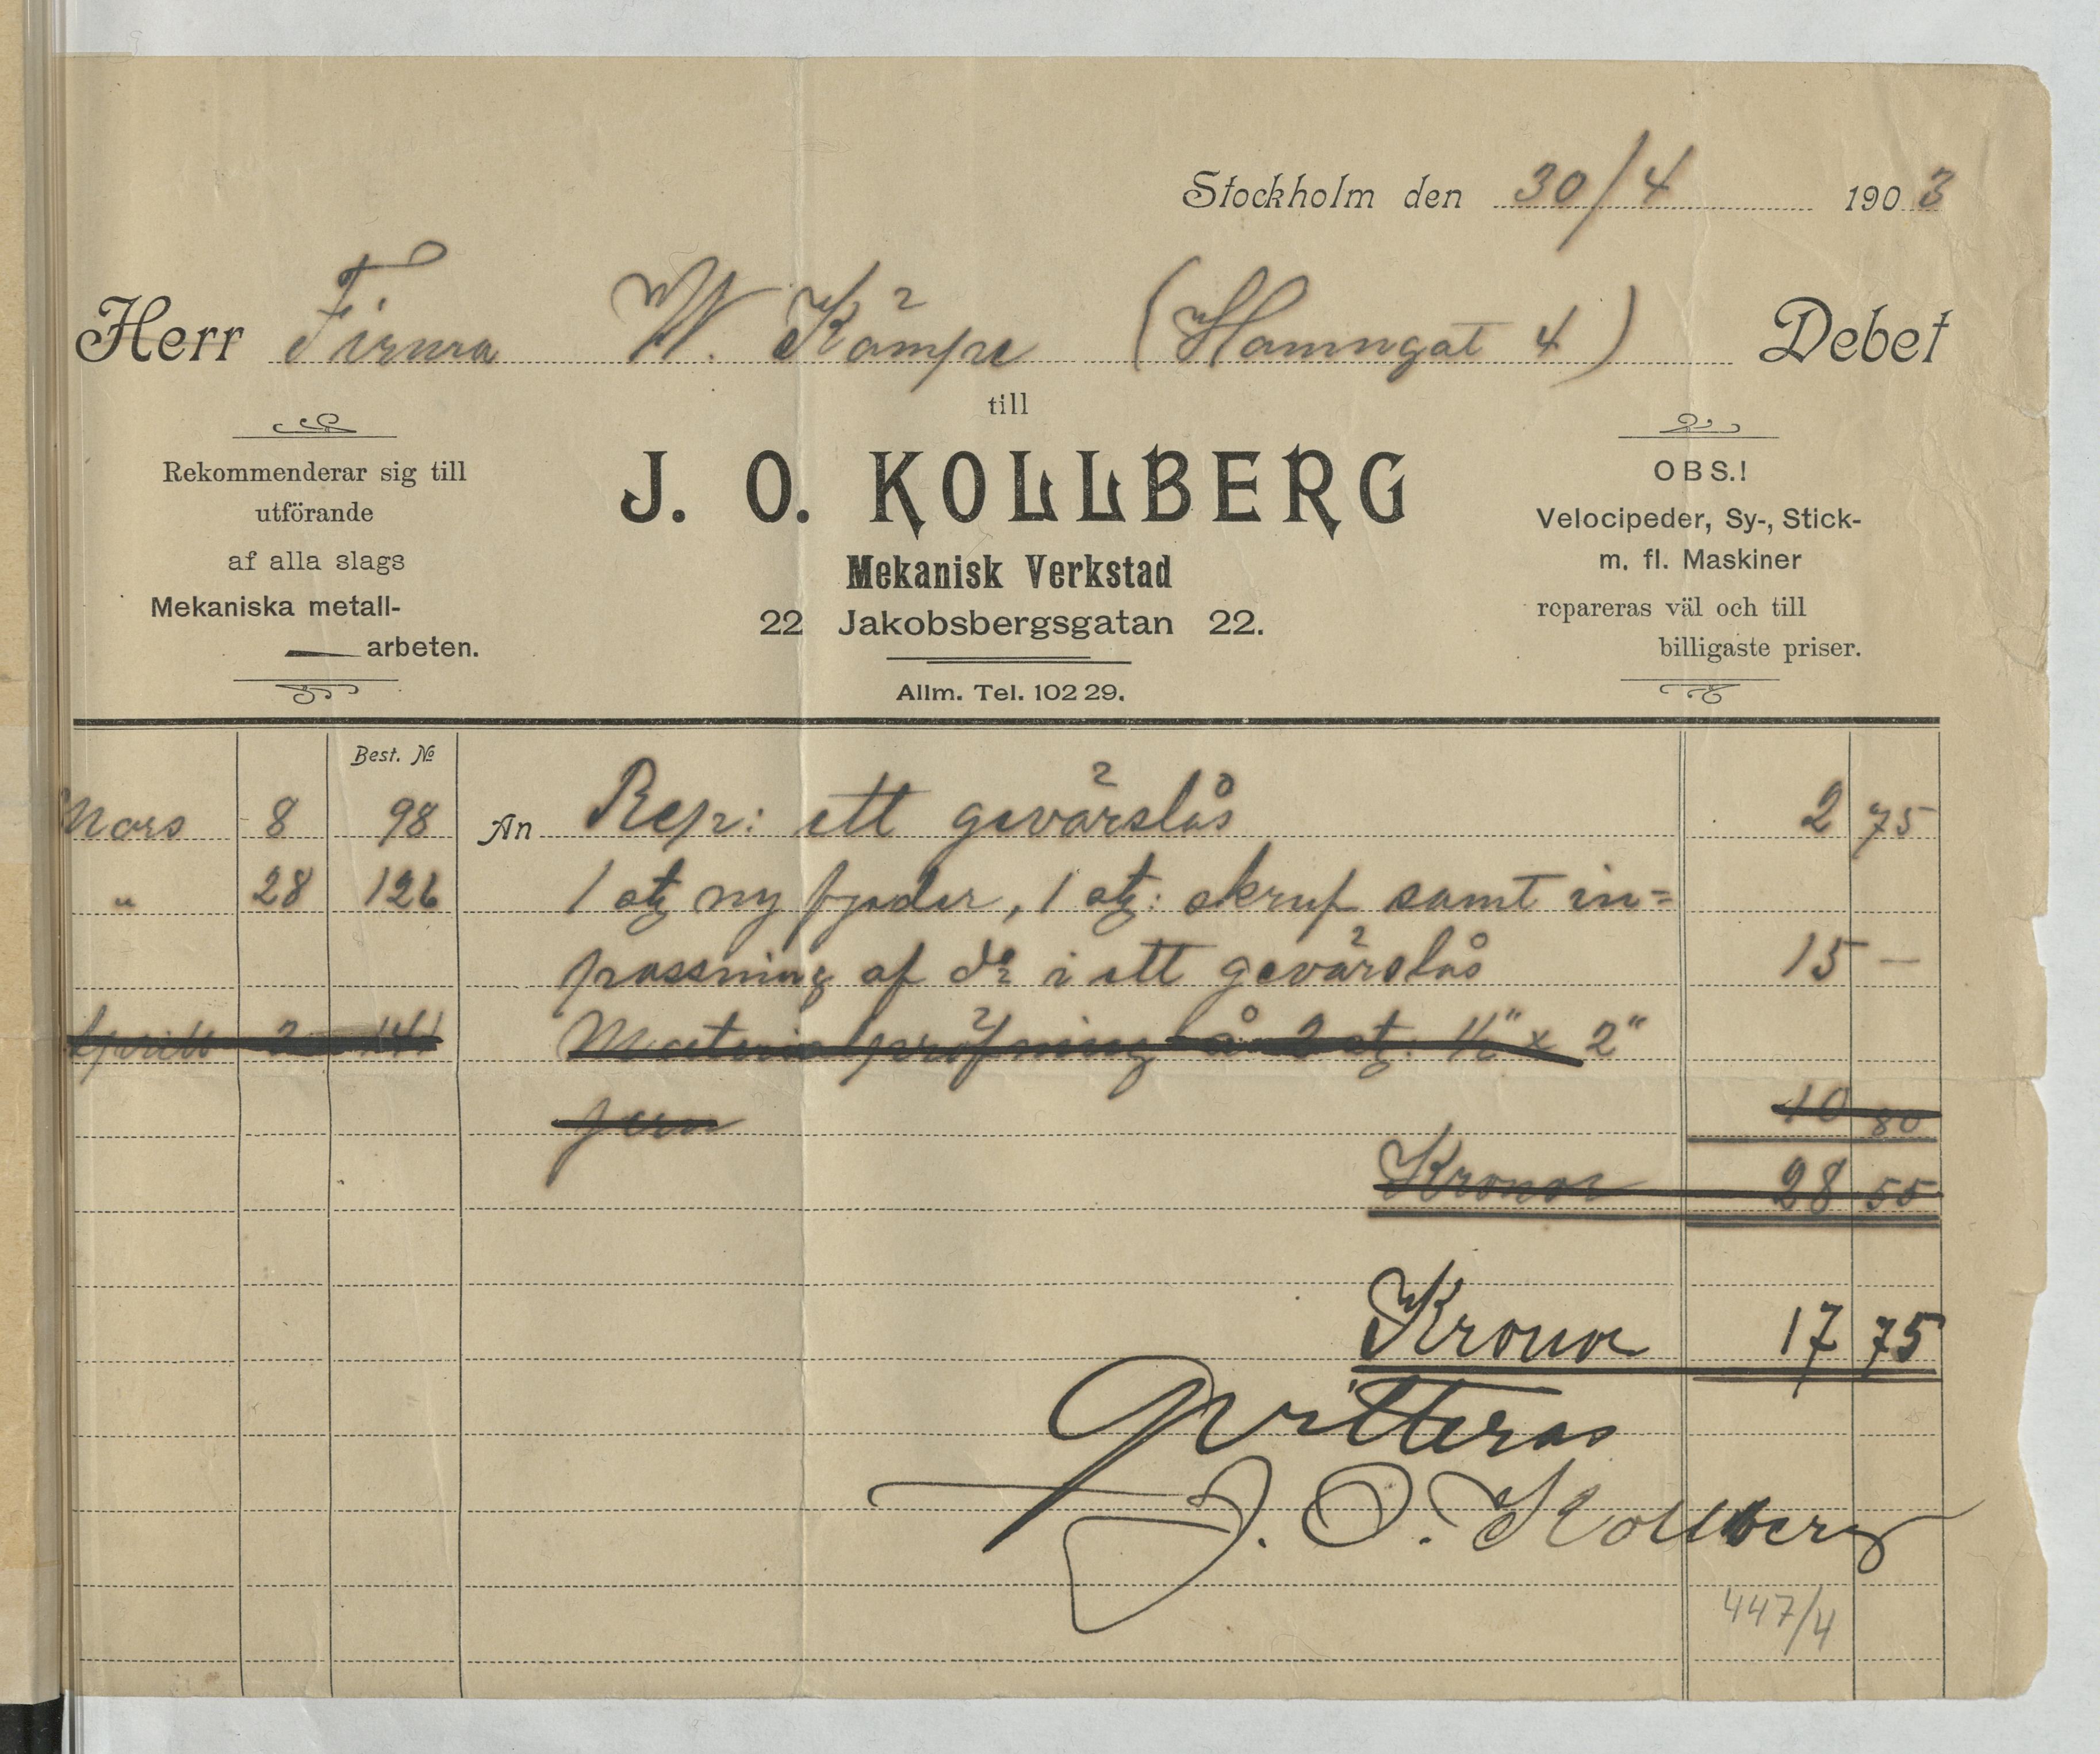 Stockholm den 30/4 1903
Herr Firma W. Kämpe (Hamngat 4) Debet
till
J. O. KOLLBERG
Mekanisk Verkstad
22 Jakobsbergsgatan 22.
Allm. Tel. 102 29.
Rekommenderar sig till
utförande
af alla slags
Mekaniska metall-
arbeten.
OBS.!
Velocipeder, Sy-, Stick-
m. fl. Maskiner
repareras väl och till
billigaste priser.
Best. No
Mars 8 98 An Rep: ett gevärslås 2 75
" 28 126 1 st ny fjäder, 1 st: skruf samt in=
passning af do i ett gevärslås 15 —
April 2 141 Materialpröfning å 2 st: 1½" x 2"
jern 10 80
Kronor 28 55
Kronor 17 75
Qvitteras
J. O. Kollberg
447/4